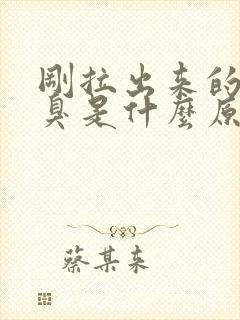 剛拉出来的
臭是什麼原
蔡某来